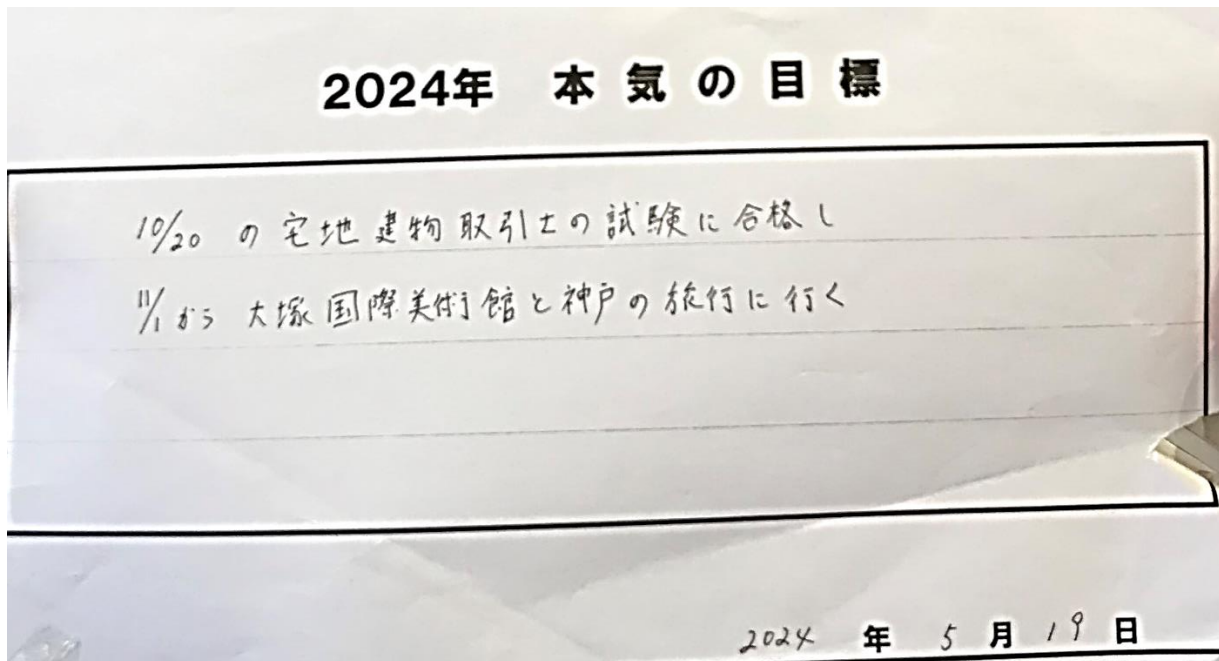 2024年 本気の目標
10/20 の宅地建物取引士の試験に合格し
11/1から 大塚国際美術館と神戸の旅行に行く
2024 年 5 月 19 日